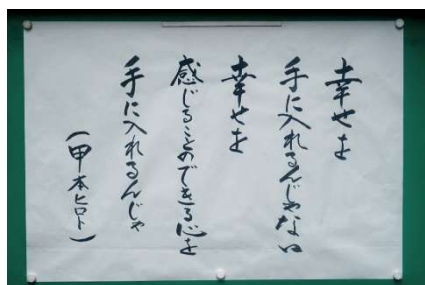 幸せを
手に入れるんじゃない
幸せを
感じることのできる心を
手に入れるんじゃ
（甲本ヒロト）